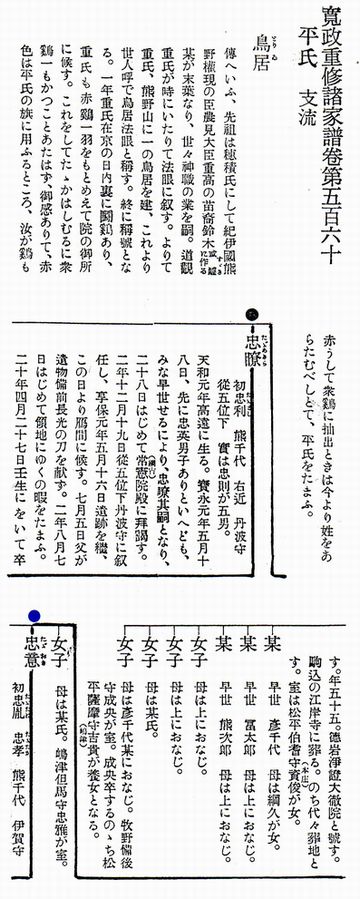 寬政重修諸家譜卷第五百六十
平氏 支流
鳥居 とりゐ
傳へいふ、先祖は穗積氏にして紀伊國熊
野權現の臣農見大臣重高の苗裔鈴木 或 鱸 に作る すゞき
某が末葉なり、世々神職の業を嗣。道觀
重氏が時にいたりて法眼に叙す。よりて
重氏、熊野山に一の鳥居を建、これより
世人呼で鳥居法眼と稱す。終に稱號とな
る。一年重氏在京の日内裏に鬪鷄あり、
重氏も赤鷄一羽をもとめえて院の御所
に候す。これをしてたゝかはしむるに衆
鷄一もかつことあたはず、御感ありて、赤
色は平氏の族に用ふるところ、汝が鷄も
赤うして衆鷄に抽出ときは今より姓をあ
らたむべしとて、平氏をたまふ。
忠瞭 たゞあきら
初忠利 熊千代 右近 丹波守
從五位下 實は忠則が五男。
天和元年高遠に生る。寳永元年五月十
八日、先に忠英男子ありといへども、
みな早世せるにより、忠瞭其嗣となり、
二十八日はじめて常憲院殿に拜謁す。
二年十二月十九日從五位下丹波守に叙
任し、享保元年五月十六日遺跡を繼、
この日より鴈間に候す。七月五日父が
遺物備前長光の刀を獻ず。二年八月七
日はじめて領地にゆくの暇をたまふ。
二十年四月二十七日壬生にをいて卒
す。年五十五。德岩淨證大徹院と號す。
駒込の江岸寺に葬る。のち代々葬地と
す。室は松平伯耆守資俊が女。
某 早世 彥千代 母は綱久が女。
某 早世 富太郎 母は上におなじ。
某 早世 熊次郎 母は上におなじ。
女子 母は上におなじ。
女子 母は上におなじ。
女子 母は某氏。
女子 母は彥千代某におなじ。牧野備後
守成央が室。成央卒するのゝち松
平薩摩守吉貴が養女となる。
女子 母は某氏。嶋津但馬守忠雅が室。
忠意 たゞおき
初忠胤 忠孝 熊千代 伊賀守